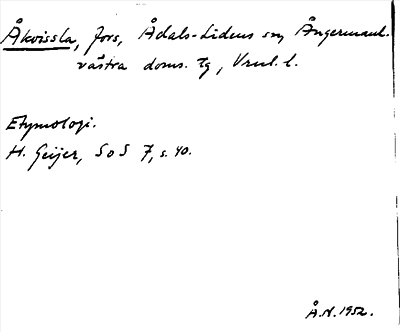 Åkvissla, fors, Ådals-Lidens sn, Ångermanl.
västra doms. tg, Vrnl. l.
Etymologi.
H. Geijer, SoS 7, s. 40.
Å.N. 1952.